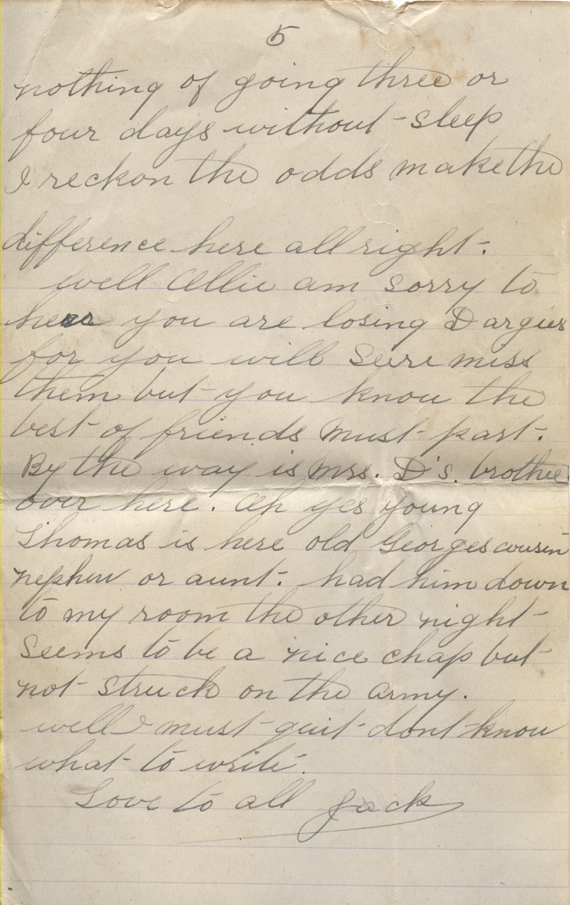 5
nothing of going three or
four days without sleep
I reckon the odds make the
difference here all right.
well Ollie am sorry to
hear you are losing Dargies
for you will sure miss
them but you know the
best of friends must part.
By the way is Mrs. D's. brother
over here. Oh yes young
Thomas is here old Georges cousin
nephew or aunt. had him down
to my room the other night
seems to be a nice chap but
not struck on the army.
well I must quit dont know
what to write.
Love to all Jack